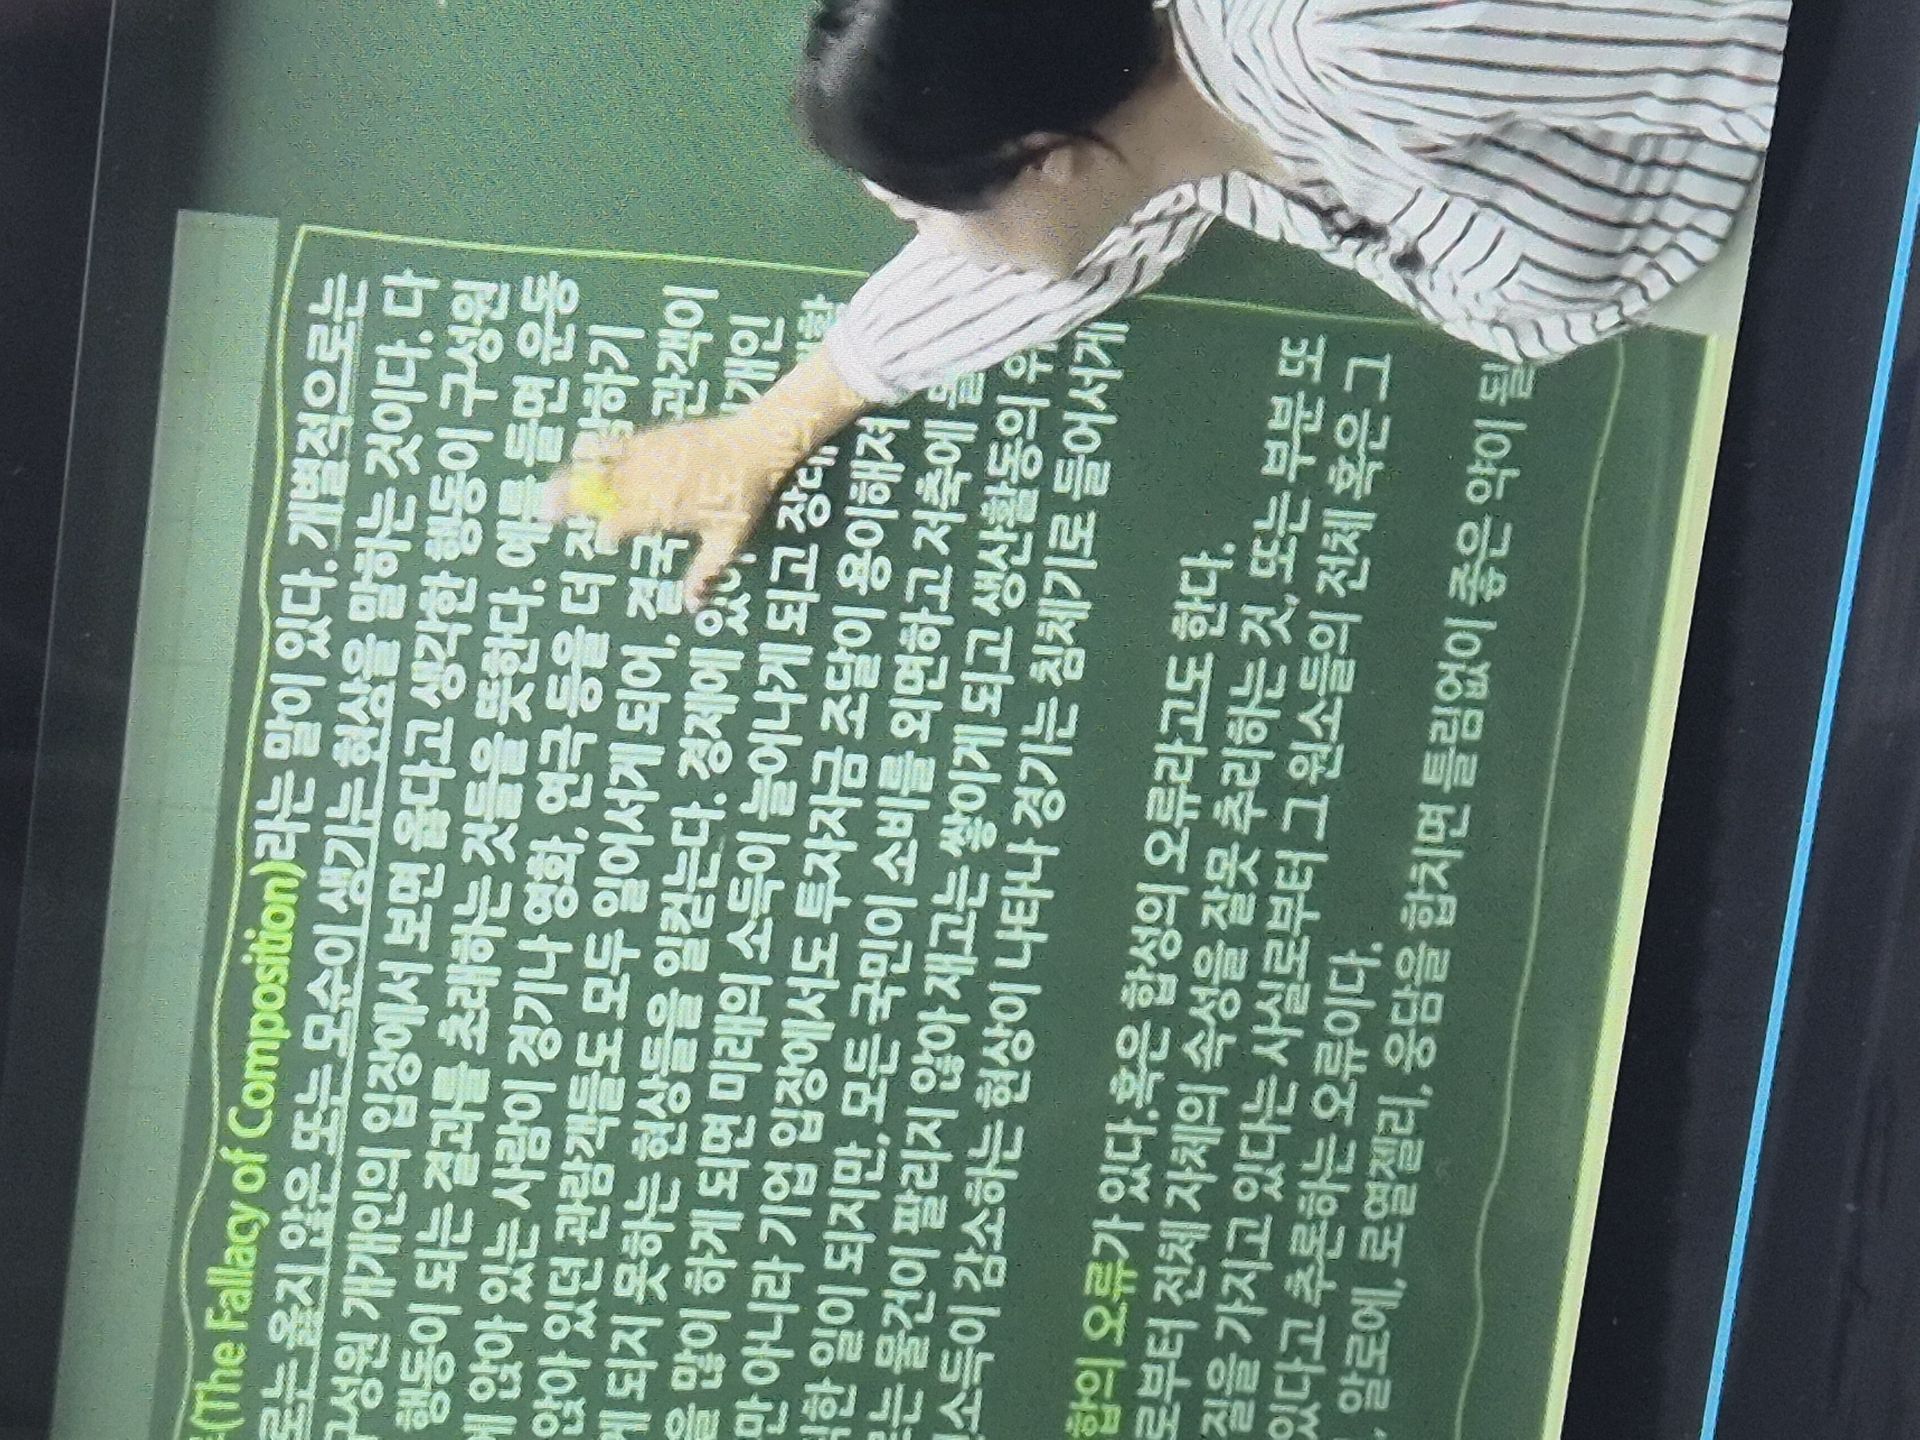 (The Fallacy of Composition)라는 말이 있다. 개별적으로는
로는 옳지 않은 또는 모순이 생기는 현상을 말하는 것이다. 다
구성원 개개인의 입장에서 보면 옳다고 생각한 행동이 구성원
행동이 되는 결과를 초래하는 것들을 뜻한다. 예를 들면 운동
앉아 있는 사람이 경기나 영화, 연극 등을 더 하기
앉아 있던 관람객들도 모두 일어서게 되어, 결국 관객이
되지 못하는 현상들을 일컫는다. 경제에 개인
을 많이 하게 되면 미래의 소득이 늘어나게 되고
만 아니라 기업 입장에서도 투자자금 조달이 용이해져
한 일이 되지만, 모든 국민이 소비를 외면하고 저축에
는 물건이 팔리지 않아 재고는 쌓이게 되고 생산활동의
소득이 감소하는 현상이 나타나 경기는 침체기로 들어서게
합의 오류가 있다.혹은 합성의 오류라고도 한다.
로부터 전체 자체의 속성을 잘못 추리하는 것, 또는 부분 또
질을 가지고 있다는 사실로부터 그 원소들의 전체 혹은 그
있다고 추론하는 오류이다.
알로에, 로열젤리, 웅담을 합치면 틀림없이 좋은 약이 될